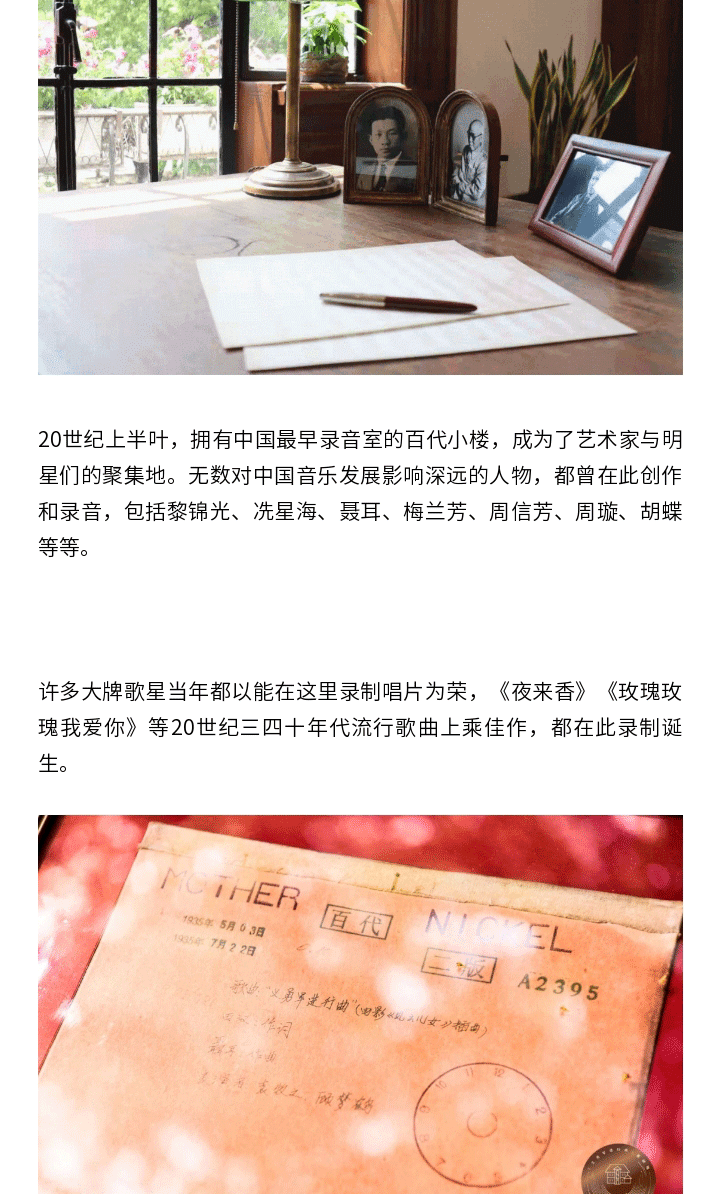 20世纪上半叶，拥有中国最早录音室的百代小楼，成为了艺术家与明
星们的聚集地。无数对中国音乐发展影响深远的人物，都曾在此创作
和录音，包括黎锦光、冼星海、聂耳、梅兰芳、周信芳、周璇、胡蝶
等等。
许多大牌歌星当年都以能在这里录制唱片为荣，《夜来香》《玫瑰玫
瑰我爱你》等20世纪三四十年代流行歌曲上乘佳作，都在此录制诞
生。
MOTHER 百代 NICKEL
1935年 5月03日
1935年 7月22日
二版 A2395
歌曲"义勇军进行曲"(电影风云儿女插曲)
田汉:作词
聂耳:作曲
袁牧之、顾梦鹤